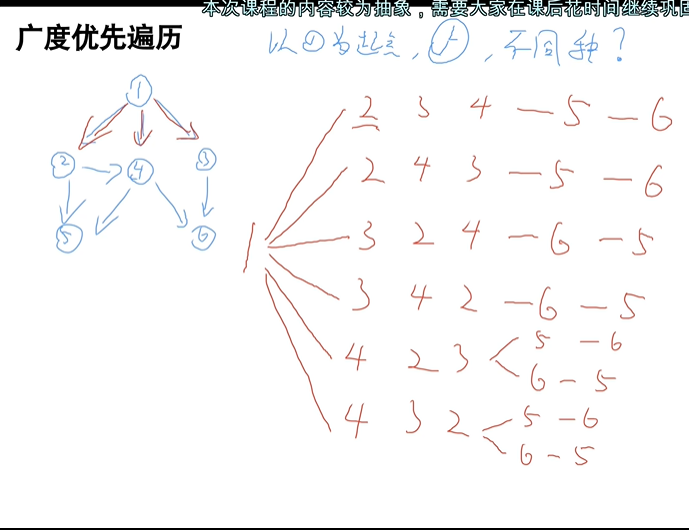 本次课程的内容较为抽象，需要大家在课后花时间继续巩固
广度优先遍历
以①为起点，，不同种？
1
2 4 3
5 6
1
2 3 4 — 5 — 6
2 4 3 — 5 — 6
3 2 4 — 6 — 5
3 4 2 — 6 — 5
4 2 3 < 5 — 6
6 — 5
4 3 2 < 5 — 6
6 — 5